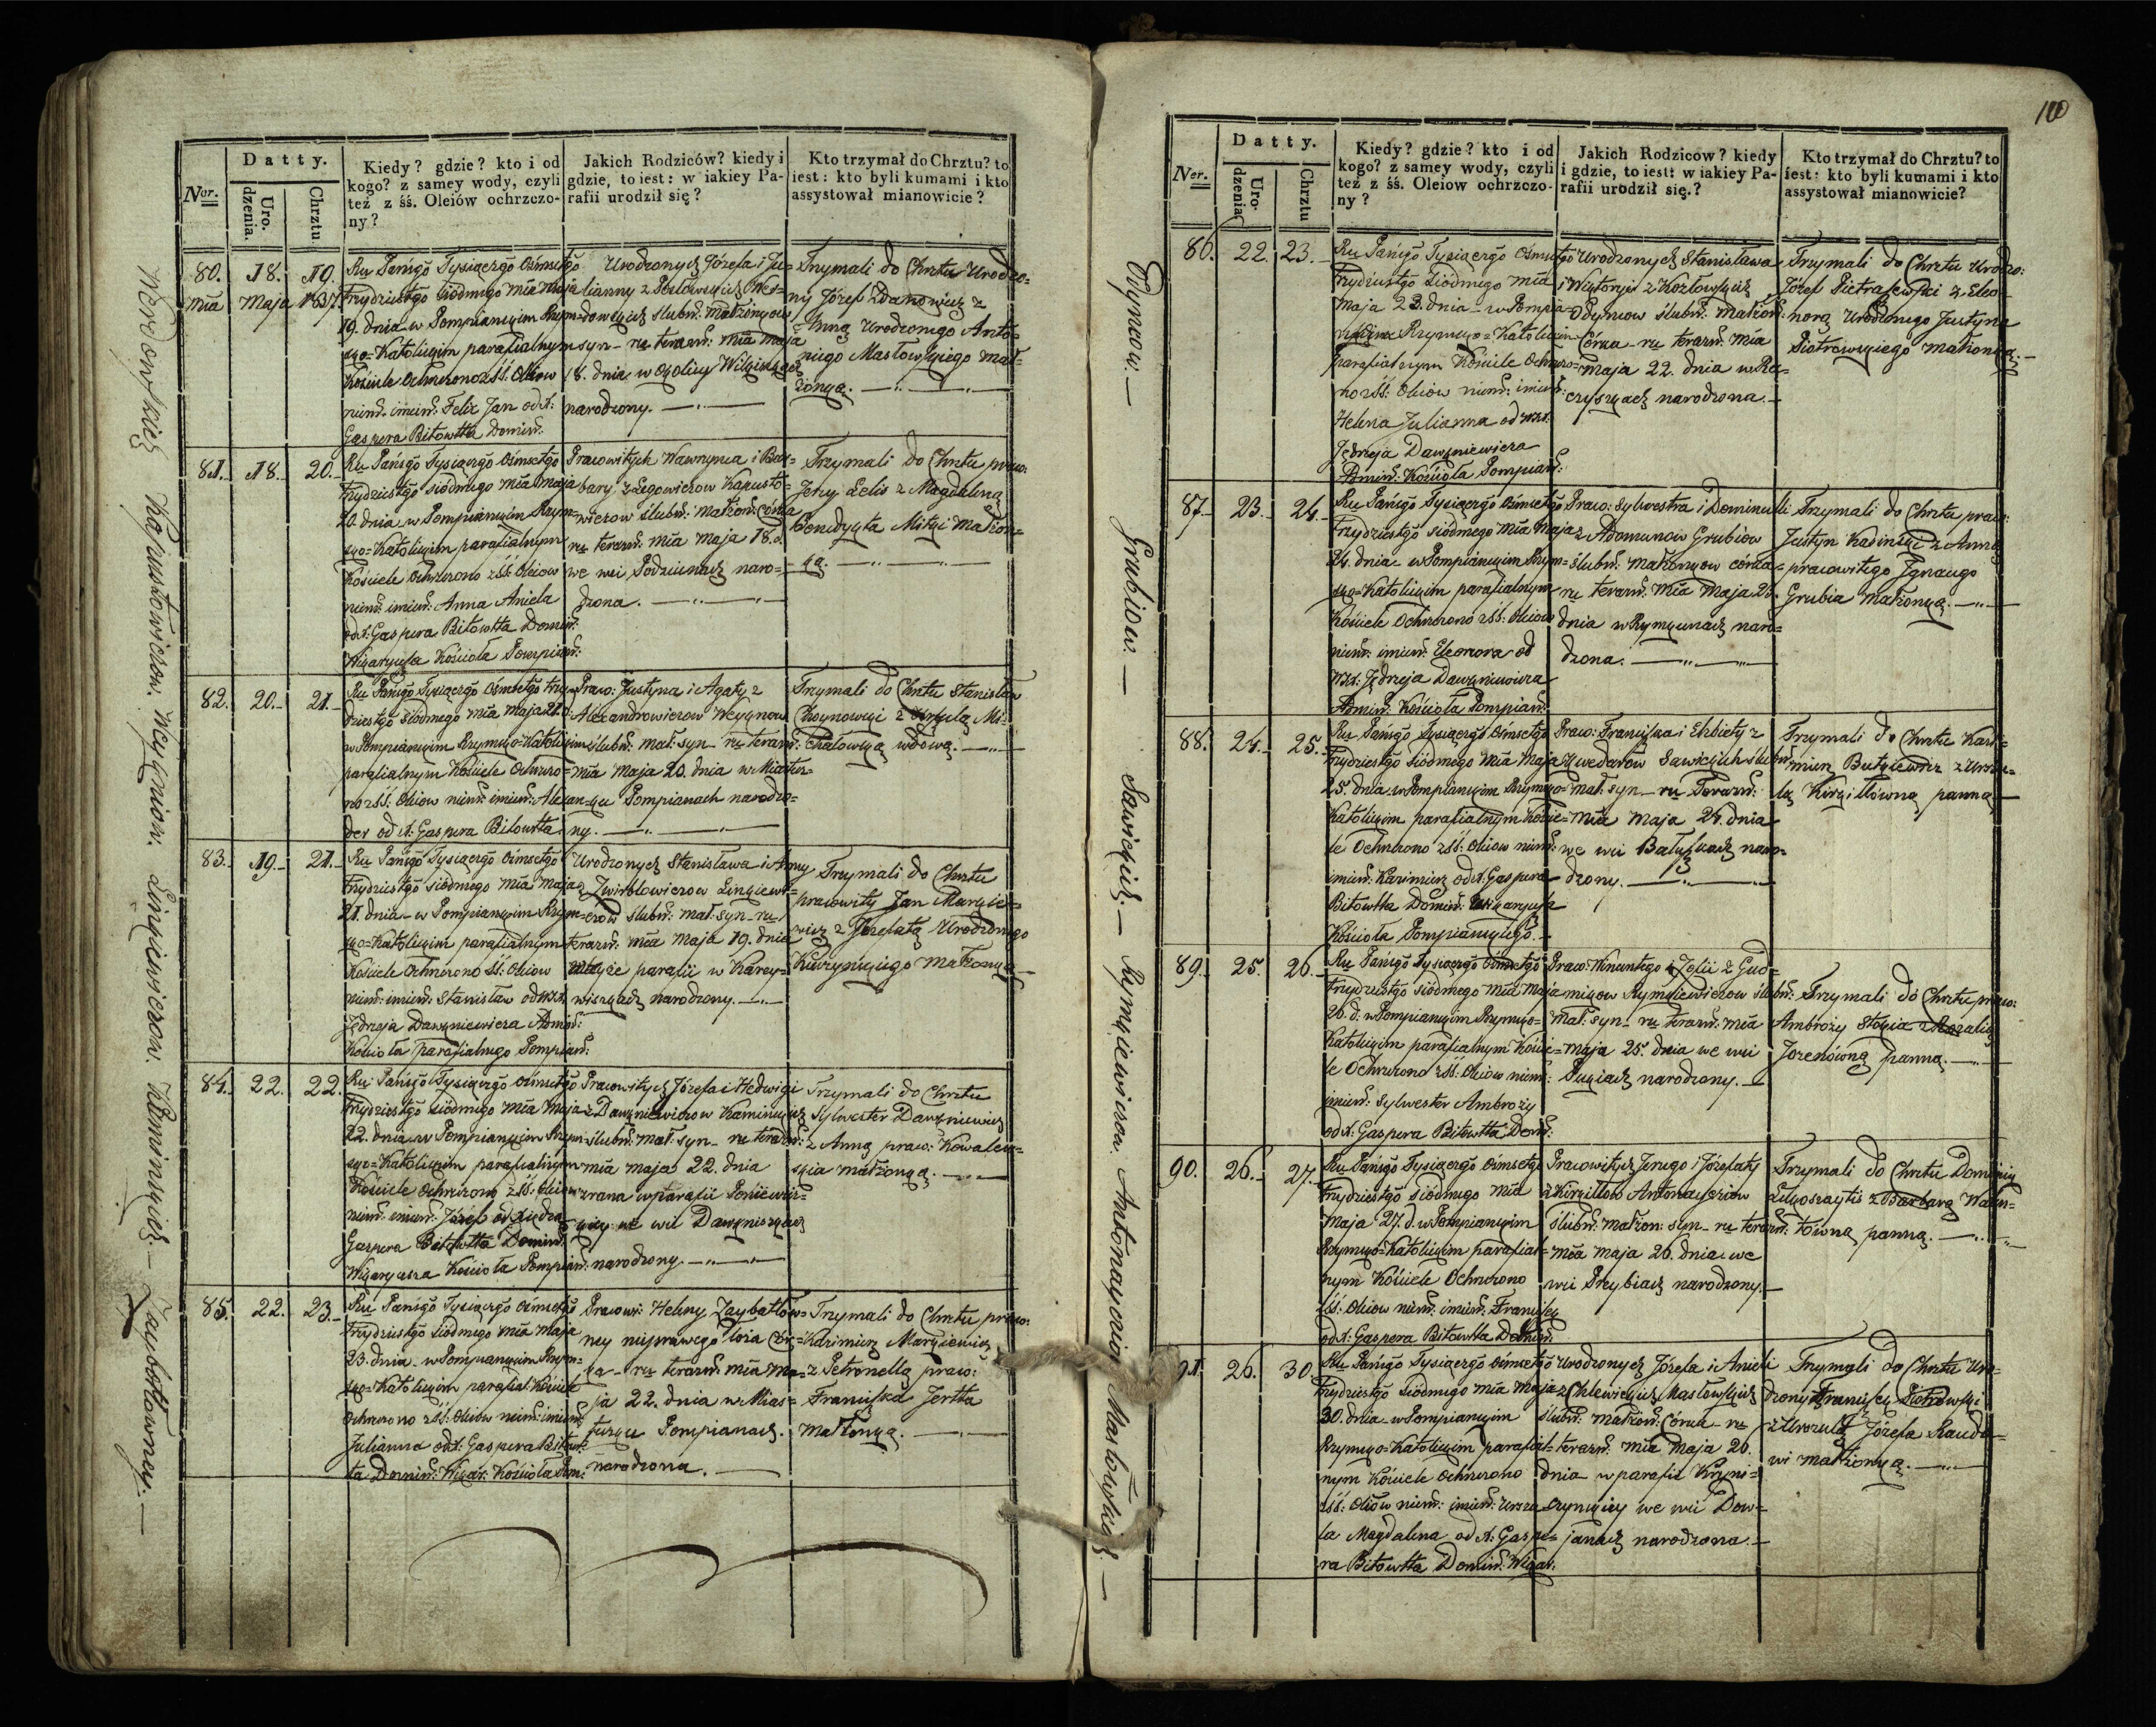 Datty.
Ner.
Uro-
dzenia.
Chrztu
Kiedy? gdzie? kto i od
kogo? z samey wody, czyli
też z śś. Oleiów ochrzczo-
ny?
Jakich Rodziców? kiedy i
gdzie, to iest: w iakiey Pa-
rafii urodził się?
Kto trzymał do Chrztu? to
iest: kto byli kumami i kto
assystował mianowicie?
80. 18. 19.
Mia Maja 1837.
Ru Pańsgo Tysiączgo Ośmsetgo
Trzydziestgo Siódmego Mia Maja
19. dnia w Pompiańskim Rzym-
sko=Katolickim parafialnym
Kościele Ochrzczono z śś. Oleiow
niem. imien. Felix Jan od X.
Gaspera Bitowtta Domin.
Urodzonych Józefa i Ju=
lianny z
małżonkow
syn – ru teraz. Mia Maja
18. dnia w Okolicy
narodzony.
Trzymali do Chrztu Urodzo=
ny Józef Zdanowicz z
Anną Urodzonego Anto=
niego Masłowskiego mał=
żonką.
81. 18. 20.
Ru Pańsgo Tysiączgo Ośmsetgo
Trzydziestgo siódmego Mia Maja
20. dnia w Pompiańskim Rzym=
sko=Katolickim parafialnym
Kościele Ochrzczono z śś. Oleiow
niem. imien. Anna Aniela
od X. Gaspera Bitowtta Domin.
Wikaryusza Kościoła Pompiań.
Pracowitych Wawrzyńca i Bar=
bary z Łegowiczow Kapusto=
wiczow ślubn. małżon. córka
ru teraz. Mia Maja 18. d.
we wsi Podziunach naro=
dzona.
Trzymali do Chrztu praw:
Jerzy Lelis z Magdaleną
Benedykta Mitki małżon=
ką.
82. 20. 21.
Ru Pańsgo Tysiączgo Ośmsetgo trzy=
dziestgo siódmego Mia Maja 21. d.
w Pompiańskim Rzymsko=Katolickim
parafialnym Kościele Ochrzczo=
no z śś. Oleiow niem. imien. Alexan=
der od X. Gaspera Bitowtta
Praw: Justyna i Agaty z
Alexandrowiczow Weyknow
ślubn. mał. syn – ru teraz.
Mia Maja 20. dnia w Miastecz=
ku Pompianach narodzo=
ny.
Trzymali do Chrztu Stanisław
Choynowski z Mi=
chałowską wdową.
83. 19. 21.
Ru Pańsgo Tysiączgo Ośmsetgo
Trzydziestgo siódmego Mia Maja
21. dnia w Pompiańskim Rzym=
sko=Katolickim parafialnym
Kościele Ochrzczono śś. Oleiow
niem. imien. Stanisław od WX.
Jędrzeja Dawkniewicza Admin.
Kościoła parafialnego Pompiań.
Urodzonych Stanisława i Anny
z Zwirblowiczow Linkiewi=
czow ślubn. mał. syn – ru
teraz. Mia Maja 19. dnia
parafii w Karcy=
wiszkach narodzony.
Trzymali do Chrztu
pracowity Jan Markie=
wicz z Jozefatą Urodzonego
małżonką
84. 22. 22.
Ru Pańsgo Tysiączgo Ośmsetgo
Trzydziestgo siódmego Mia Maja
22. dnia w Pompiańskim Rzym=
sko=Katolickim parafialnym
Kościele Ochrzczono z śś. Oleiow
niem. imien. Józef od Xiędza
Gaspera Bitowtta Domin.
Wikaryusza Kościoła Pompiań.
Pracowitych Józefa i Hedwigi
z Dawkniewiczow Kaminskich
ślubn. mał. syn – ru teraz.
Mia Maja 22. dnia
zrana w parafii Poniewież=
skiey we wsi Dawkniszkach
narodzony.
Trzymali do Chrztu
Sylwester Dawkniewicz
z Anną praw: Kowalew=
skia małżonką.
85. 22. 23.
Ru Pańsgo Tysiączgo Ośmsetgo
Trzydziestgo siódmego Mia Maja
23. dnia w Pompiańskim Rzym=
sko=Katolickim parafial. Kościele
Ochrzczono z śś. Oleiow niem. imien.
Julianna od X. Gaspera Bitowt=
ta Domin. Wikar. Kościoła Pom:
Pracow: Heleny Zaybottow=
ney nieprawego łoża Cór=
ka – ru teraz. Mia Ma=
ja 22. dnia w Mias=
teczku Pompianach
narodzona.
Trzymali do Chrztu praw:
Kazimierz Markiewicz
z Petronellą praw:
Franciszka Jertta
małżonką.
Kapustowiczow. Weyknow. Linkiewiczow. Kaminskich. – Zaybottowney. –
100
Datty.
Ner.
Uro-
dzenia.
Chrztu
Kiedy? gdzie? kto i od
kogo? z samey wody, czyli
też z śś. Oleiow ochrzczo-
ny?
Jakich Rodzicow? kiedy
i gdzie, to iest: w iakiey Pa-
rafii urodził się.?
Kto trzymał do Chrztu? to
iest: kto byli kumami i kto
assystował mianowicie?
86. 22. 23.
Ru Pańsgo Tysiączgo Ośmsetgo
Trzydziestgo Siódmego Mia
Maja 23. dnia – w Pompia=
Rzymsko=Katolickim
parafialnym Kościele Ochrzczo=
no z śś. Oleiow niem. imien.
Helena Julianna od WX.
Jędrzeja Dawkniewicza
Admin. Kościoła Pompiań.
Urodzonych Stanisława
i Wiktoryi z Kozłowskich
Odyncow ślubn. małżon.
Córka – ru teraz. Mia
Maja 22. dnia w Ra=
czyszkach narodzona.
Trzymali do Chrztu Urodzo:
Józef Pietraszewski z Eleo=
norą Urodzonego Justyna
Piotrowskiego małżonką.
87. 23. 24.
Ru Pańsgo Tysiączgo Ośmsetgo
Trzydziestgo siódmego Mia Maja
24. dnia w Pompiańskim Rzym=
sko=Katolickim parafialnym
Kościele Ochrzczono z śś. Oleiow
niem. imien. Eleonora od
WX. Jędrzeja Dawkniewicza
Admin. Kościoła Pompiań.
Praw: Sylwestra i Dominceli
z Adomunow Grubiow
ślubn. małżonkow córka=
ru teraz. Mia Maja 23.
dnia w Rymkunach naro=
dzona.
Trzymali do Chrztu praw:
Justyn Kadinski z Anną
pracowitego Ignacego
Grubia małżonką.
88. 24. 25.
Ru Pańsgo Tysiączgo Ośmsetgo
Trzydziestgo siódmego Mia Maja
25. dnia w Pompiańskim Rzymsko=
Katolickim parafialnym Koście=
le Ochrzczono z śś. Oleiow niem.
imien. Kazimierz od X. Gaspera
Bitowtta Domin. Wikaryusza
Kościoła Pompiańskiego.
Praw: Franciszka i Elżbiety z
Szwedarow Sawickich ślubn.
mał. syn – ru Teraz.
Mia Maja 24. dnia
we wsi naro=
dzony.
Trzymali do Chrztu Kazi=
mierz Butkiewicz z Urszu=
lą Kirkiłłówną panną
89. 25. 26.
Ru Pańsgo Tysiączgo Ośmsetgo
Trzydziestgo siódmego Mia Maja
26. d. w Pompiańskim Rzymsko=
Katolickim parafialnym Koście=
le Ochrzczono z śś. Oleiow niem:
imien. Sylwester Ambroży
od X. Gaspera Bitowtta Domin.
Praw: Wincentego i Zofii z Gud=
Rymkiewiczow ślubn.
mał. syn – ru teraz. Mia
Maja 25. dnia we wsi
narodzony.
Trzymali do Chrztu praw:
Ambroży z Rozalią
panną.
90. 26. 27.
Ru Pańsgo Tysiączgo Ośmsetgo
Trzydziestgo siódmego Mia
Maja 27. d. w Pompiańskim
Rzymsko=Katolickim parafial=
nym Kościele Ochrzczono
z śś. Oleiow niem. imien. Franciszek
od X. Gaspera Bitowtta Domin.
Pracowitych Jerzego i Józefaty
z Kirkiłłow Antonayciow
ślubn. małżon: syn – ru teraz.
Mia Maja 26. dnia we
wsi Przybiach narodzony.
Trzymali do Chrztu Dominik
z Barbarą
panną.
91. 26. 30.
Ru Pańsgo Tysiączgo Ośmsetgo
Trzydziestgo Siódmego Mia Maja
30. dnia w Pompiańskim
Rzymsko=Katolickim parafial=
nym Kościele Ochrzczono
z śś. Oleiow niem. imien. Urszu=
la Magdalena od X. Gaspe=
ra Bitowtta Domin. Wikar.
Urodzonych Józefa i Anieli
z Chlewickich Masłowskich
ślubn. małżon. Córka – ru
teraz. Mia Maja 26.
dnia w parafii Kryni=
czynskiey we wsi Dow=
janach narodzona.
Trzymali do Chrztu Uro=
dzony Franciszek Piotrowski
z Urszulą Józefa Raudo=
wi małżonką.
Odyncow. – Grubiow. – Sawickich. – Rymkiewiczow. Antonayciow Masłowskich. –